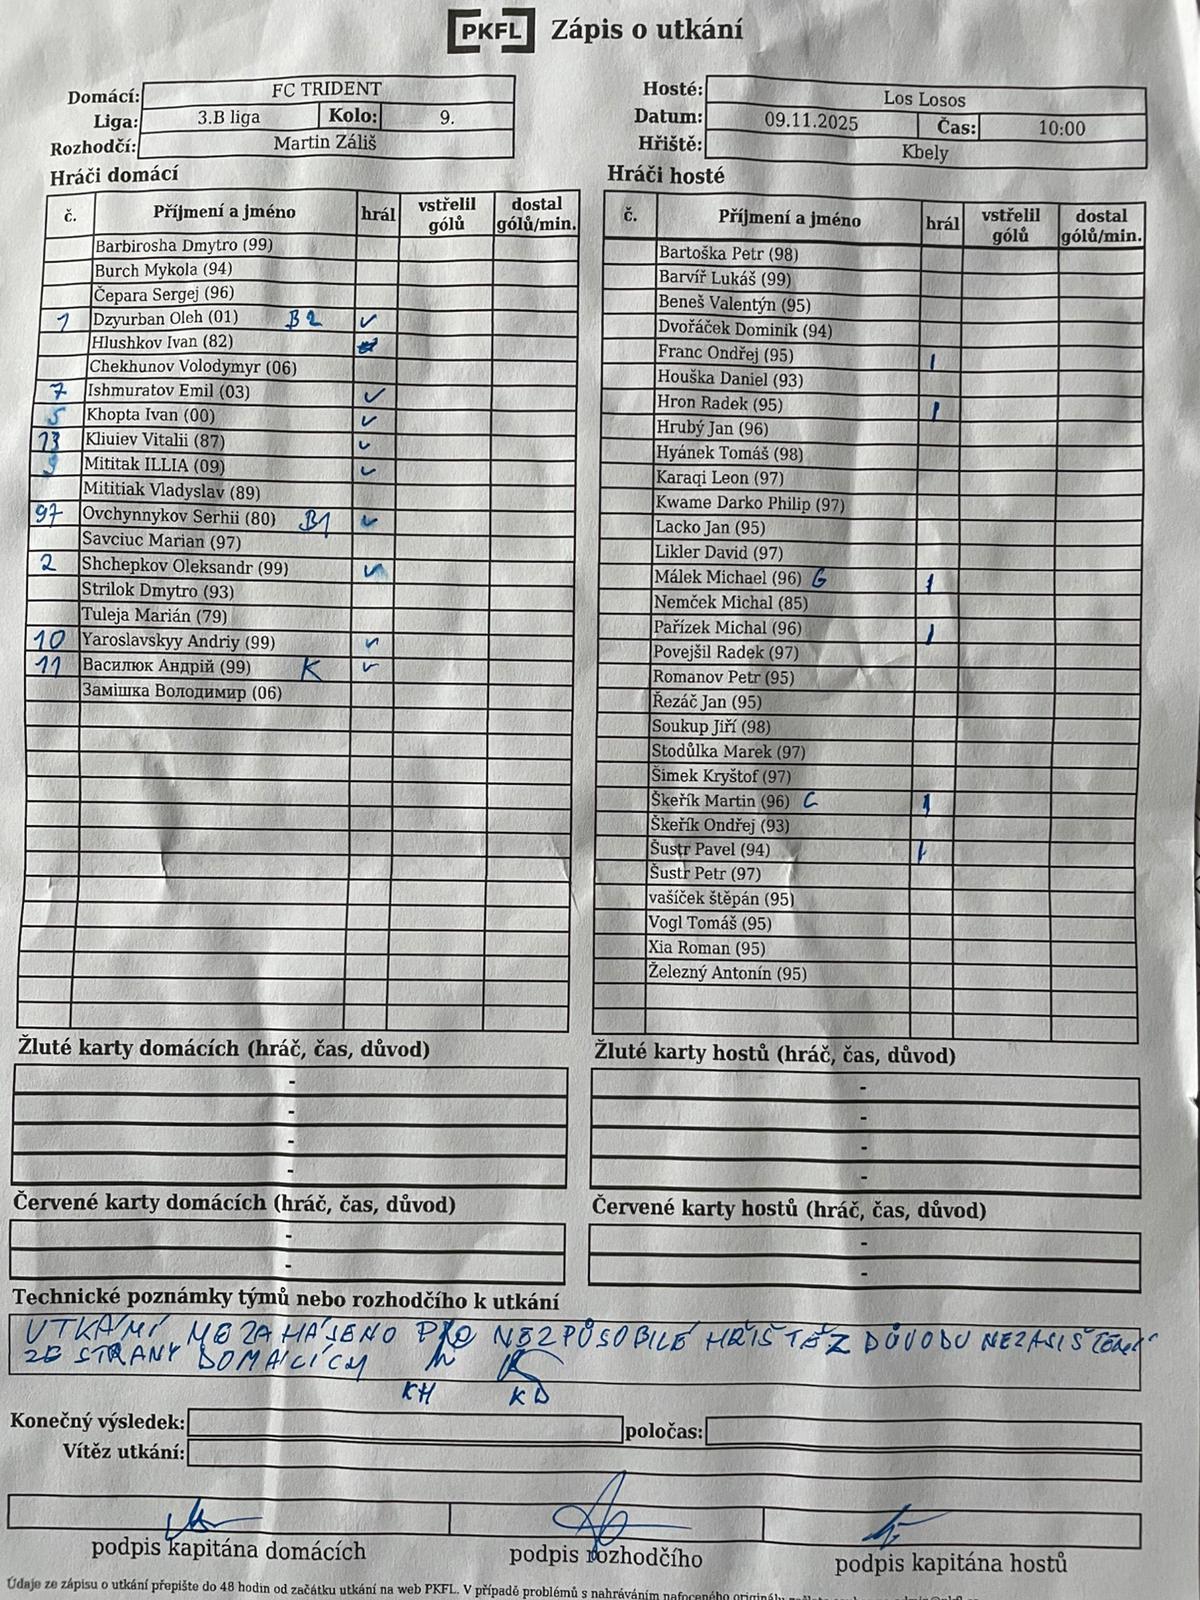 PKFL Zápis o utkání
Domácí: FC TRIDENT
Liga: 3.B liga Kolo: 9.
Rozhodčí: Martin Záliš
Hosté: Los Losos
Datum: 09.11.2025 Čas: 10:00
Hřiště: Kbely
Hráči domácí
č. Příjmení a jméno hrál vstřelil gólů dostal gólů/min.
Barbirosha Dmytro (99)
Burch Mykola (94)
Čepara Sergej (96)
1 Dzyurban Oleh (01) B2 ✓
Hlushkov Ivan (82)
Chekhunov Volodymyr (06)
7 Ishmuratov Emil (03) ✓
5 Khopta Ivan (00) ✓
13 Kliuiev Vitalii (87) ✓
9 Mititak ILLIA (09) ✓
Mititiak Vladyslav (89)
97 Ovchynnykov Serhii (80) B1 ✓
Savciuc Marian (97)
2 Shchepkov Oleksandr (99) ✓
Strilok Dmytro (93)
Tuleja Marián (79)
10 Yaroslavskyy Andriy (99) ✓
11 Василюк Андрій (99) K ✓
Замішка Володимир (06)
Hráči hosté
č. Příjmení a jméno hrál vstřelil gólů dostal gólů/min.
Bartoška Petr (98)
Barvíř Lukáš (99)
Beneš Valentýn (95)
Dvořáček Dominik (94)
Franc Ondřej (95) I
Houška Daniel (93)
Hron Radek (95) I
Hrubý Jan (96)
Hyánek Tomáš (98)
Karaqi Leon (97)
Kwame Darko Philip (97)
Lacko Jan (95)
Likler David (97)
Málek Michael (96) G I
Nemček Michal (85)
Pařízek Michal (96) I
Povejšil Radek (97)
Romanov Petr (95)
Řezáč Jan (95)
Soukup Jiří (98)
Stodůlka Marek (97)
Šimek Kryštof (97)
Škeřík Martin (96) C I
Škeřík Ondřej (93)
Šustr Pavel (94) I
Šustr Petr (97)
vašíček štěpán (95)
Vogl Tomáš (95)
Xia Roman (95)
Železný Antonín (95)
Žluté karty domácích (hráč, čas, důvod)
-
-
-
-
Žluté karty hostů (hráč, čas, důvod)
-
-
-
-
Červené karty domácích (hráč, čas, důvod)
-
-
Červené karty hostů (hráč, čas, důvod)
-
-
Technické poznámky týmů nebo rozhodčího k utkání
UTKÁNÍ NEZAHÁJENO PRO NEZPŮSOBILÉ HŘIŠTĚ Z DŮVODU NEZAJIŠTĚNÍ
ZE STRANY DOMÁCÍCH
KH KD
Konečný výsledek: poločas:
Vítěz utkání:
podpis kapitána domácích podpis rozhodčího podpis kapitána hostů
Údaje ze zápisu o utkání přepište do 48 hodin od začátku utkání na web PKFL. V případě problémů s nahráváním nafoceného originálu